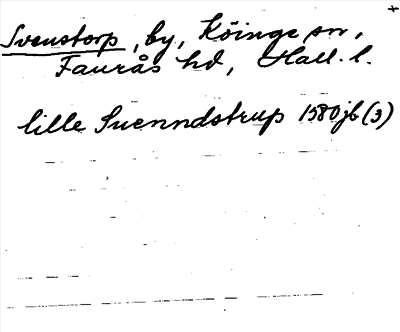 Svenstorp, by, Köinge sn,
Faurås hd, Hall. l.
lille Suenndstrup 1580 jb (3)